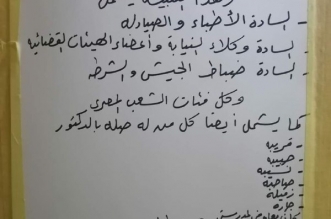 - السادة الأطباء والصيادله
- السادة وكلاء النيابة وأعضاء الهيئات القضائية
- السادة ضباط الجيش والشرطه
وكل فئات الشعب المصري
كما يشمل أيضا كل من له صله بالدكتور
- قريبه
- حبيبه
- نسيبه
- صاحبه
- زميله
- جاره